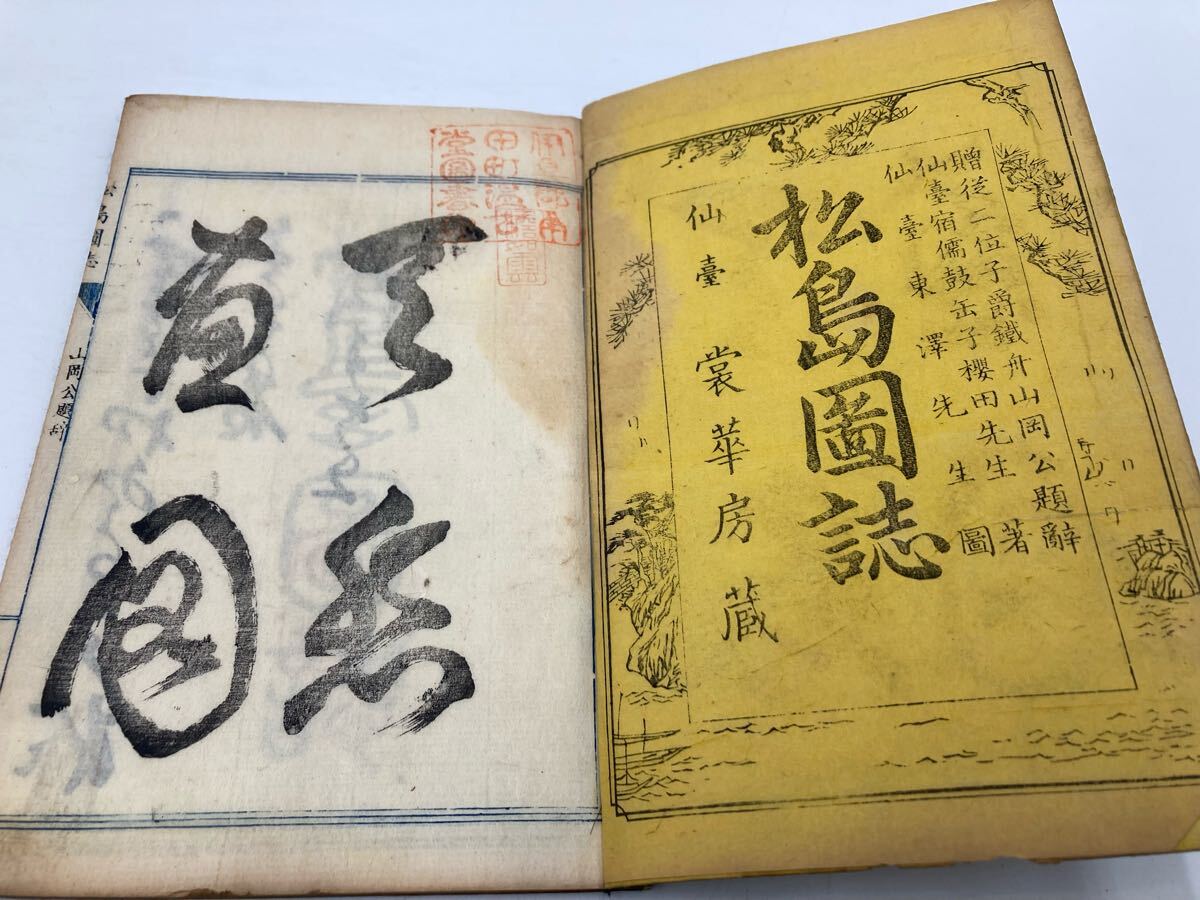 贈從二位子爵鐵舟山岡公題辭
仙臺宿儒鼓缶子櫻田先生著
仙臺東澤先生圖
松島圖誌
仙臺裳華房蔵
天然
畫圖
松島圖誌
山岡公題辭